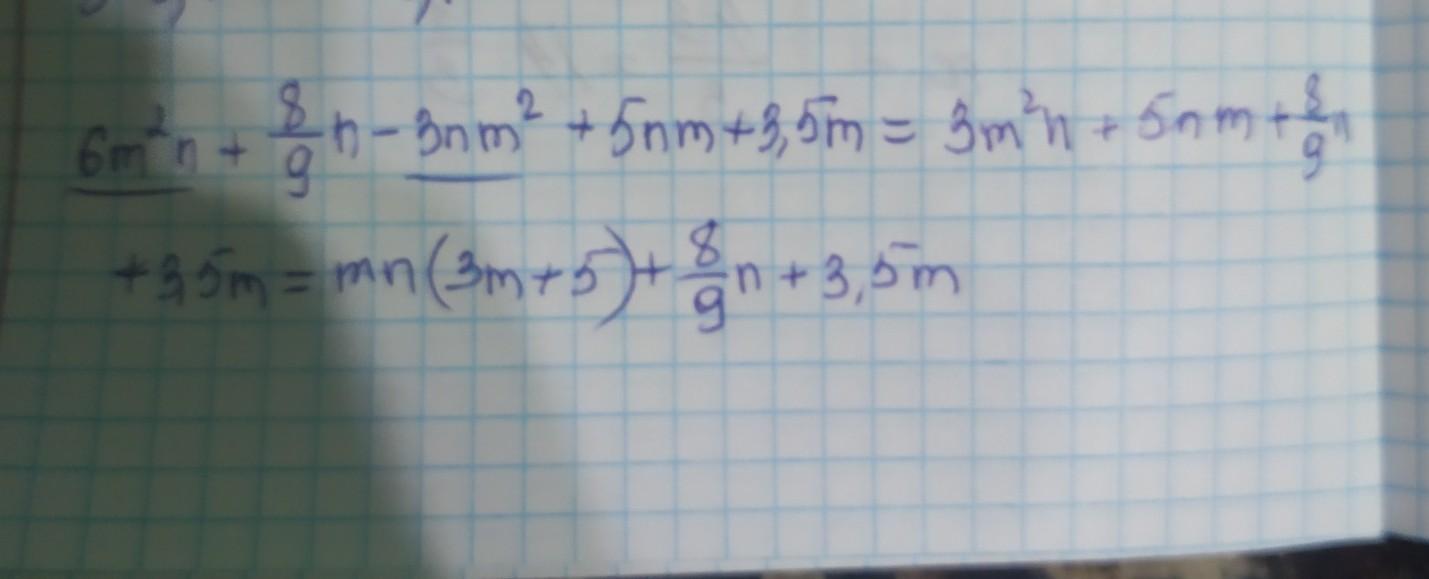 6m²n + 8/9 n - 3nm² + 5nm + 3,5m = 3m²n + 5nm + 8/9 n
+ 3,5m = mn(3m + 5) + 8/9 n + 3,5m